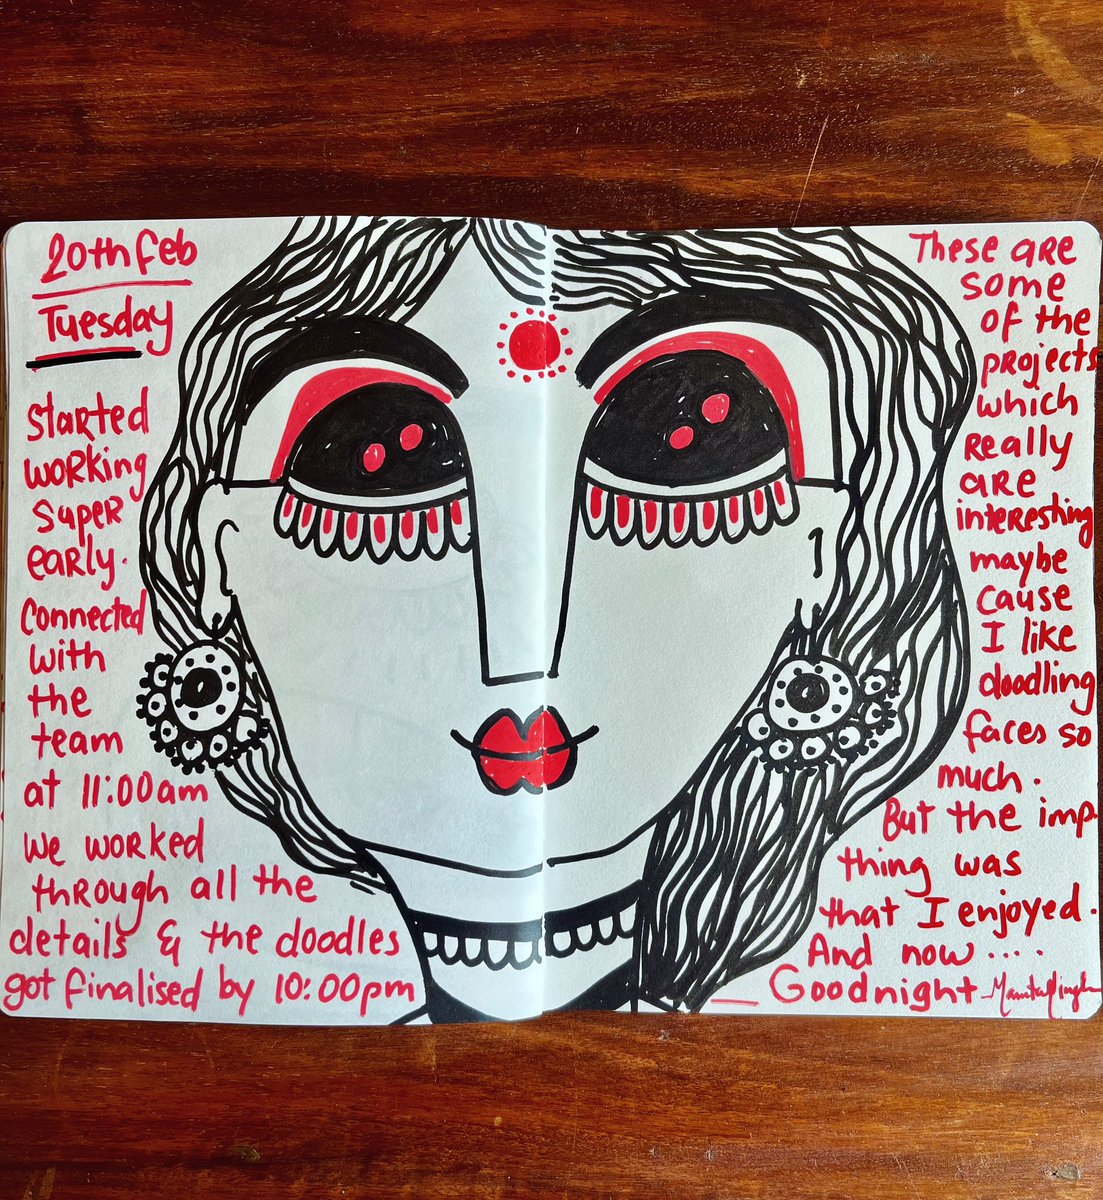 20th Feb
Tuesday
Started
working
super
early.
Connected
with
the
team
at 11:00am
We worked
through all the
details & the doodles
got finalised by 10:00pm
These are
some
of the
projects
which
really
are
interesting
maybe
cause
I like
doodling
faces so
much.
But the imp
thing was
that I enjoyed.
And now....
Goodnight